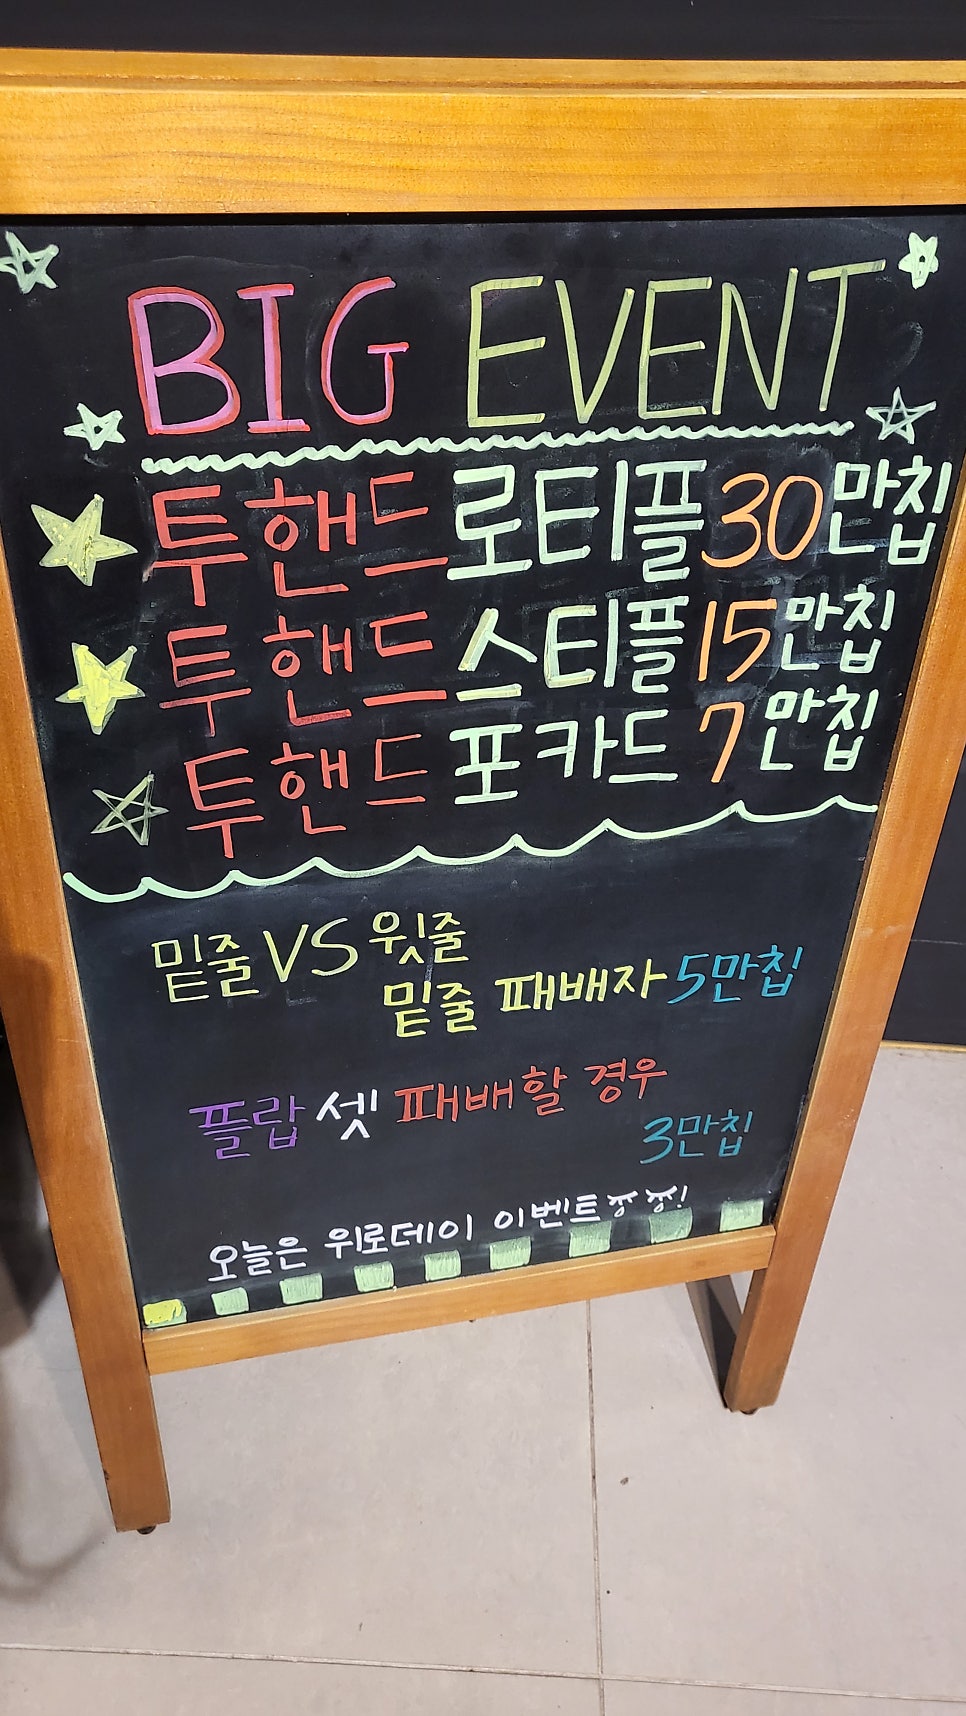 BIG EVENT
투핸드 로티플 30만칩
투핸드 스티플 15만칩
투핸드 포카드 7만칩
밑줄 VS 윗줄
밑줄 패배자 5만칩
플랍 셋 패배할 경우
3만칩
오늘은 위로데이 이벤트